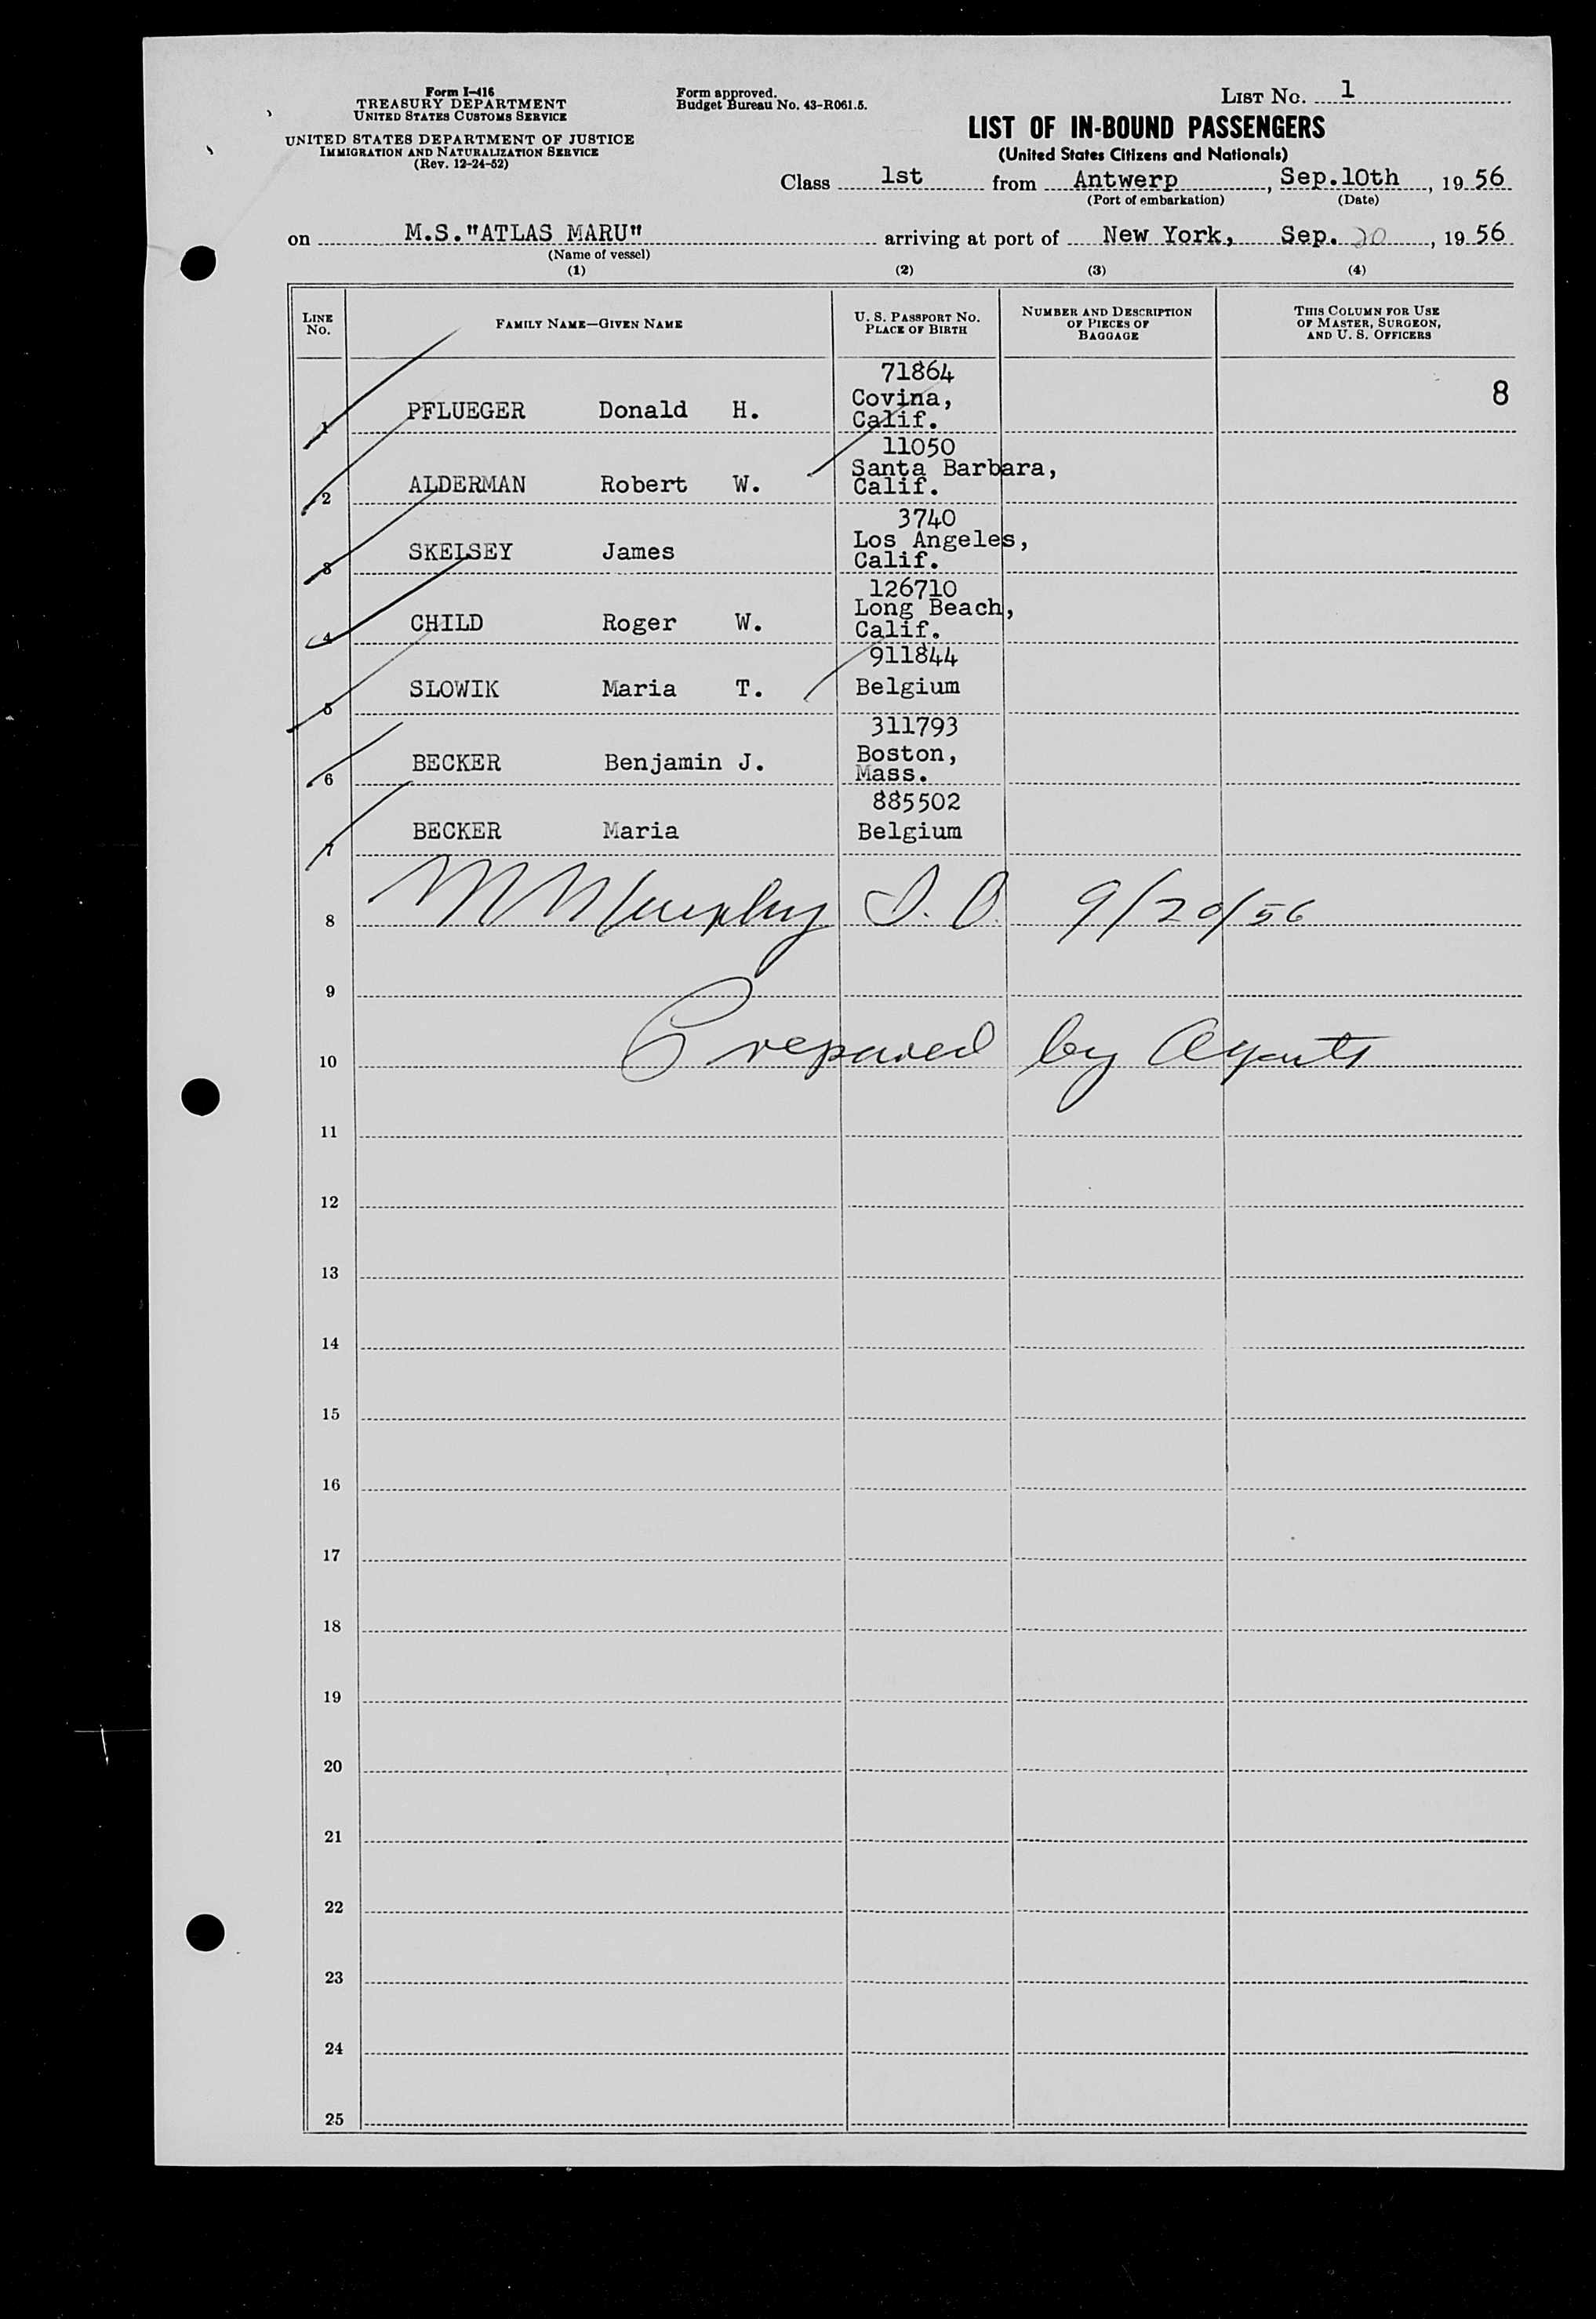 Form I-416
TREASURY DEPARTMENT
UNITED STATES CUSTOMS SERVICE
UNITED STATES DEPARTMENT OF JUSTICE
IMMIGRATION AND NATURALIZATION SERVICE
(Rev. 12-24-52)
Form approved.
Budget Bureau No. 43-R061.5.
LIST NO. 1
LIST OF IN-BOUND PASSENGERS
(United States Citizens and Nationals)
Class 1st from Antwerp, Sep.10th, 19 56
(Port of embarkation) (Date)
on M.S."ATLAS MARU" arriving at port of New York, Sep. 20, 19 56
(Name of vessel)
(1) (2) (3) (4)
LINE NO. FAMILY NAME—GIVEN NAME U. S. PASSPORT NO. PLACE OF BIRTH NUMBER AND DESCRIPTION OF PIECES OF BAGGAGE THIS COLUMN FOR USE OF MASTER, SURGEON, AND U. S. OFFICERS
71864
8
1 PFLUEGER Donald H. Covina, Calif.
11050
2 ALDERMAN Robert W. Santa Barbara, Calif.
3740
3 SKELSEY James Los Angeles, Calif.
126710
4 CHILD Roger W. Long Beach, Calif.
911844
5 SLOWIK Maria T. Belgium
311793
6 BECKER Benjamin J. Boston, Mass.
885502
7 BECKER Maria Belgium
8 Murphy I.O. 9/20/56
9
10 Prepared by Agents
11
12
13
14
15
16
17
18
19
20
21
22
23
24
25